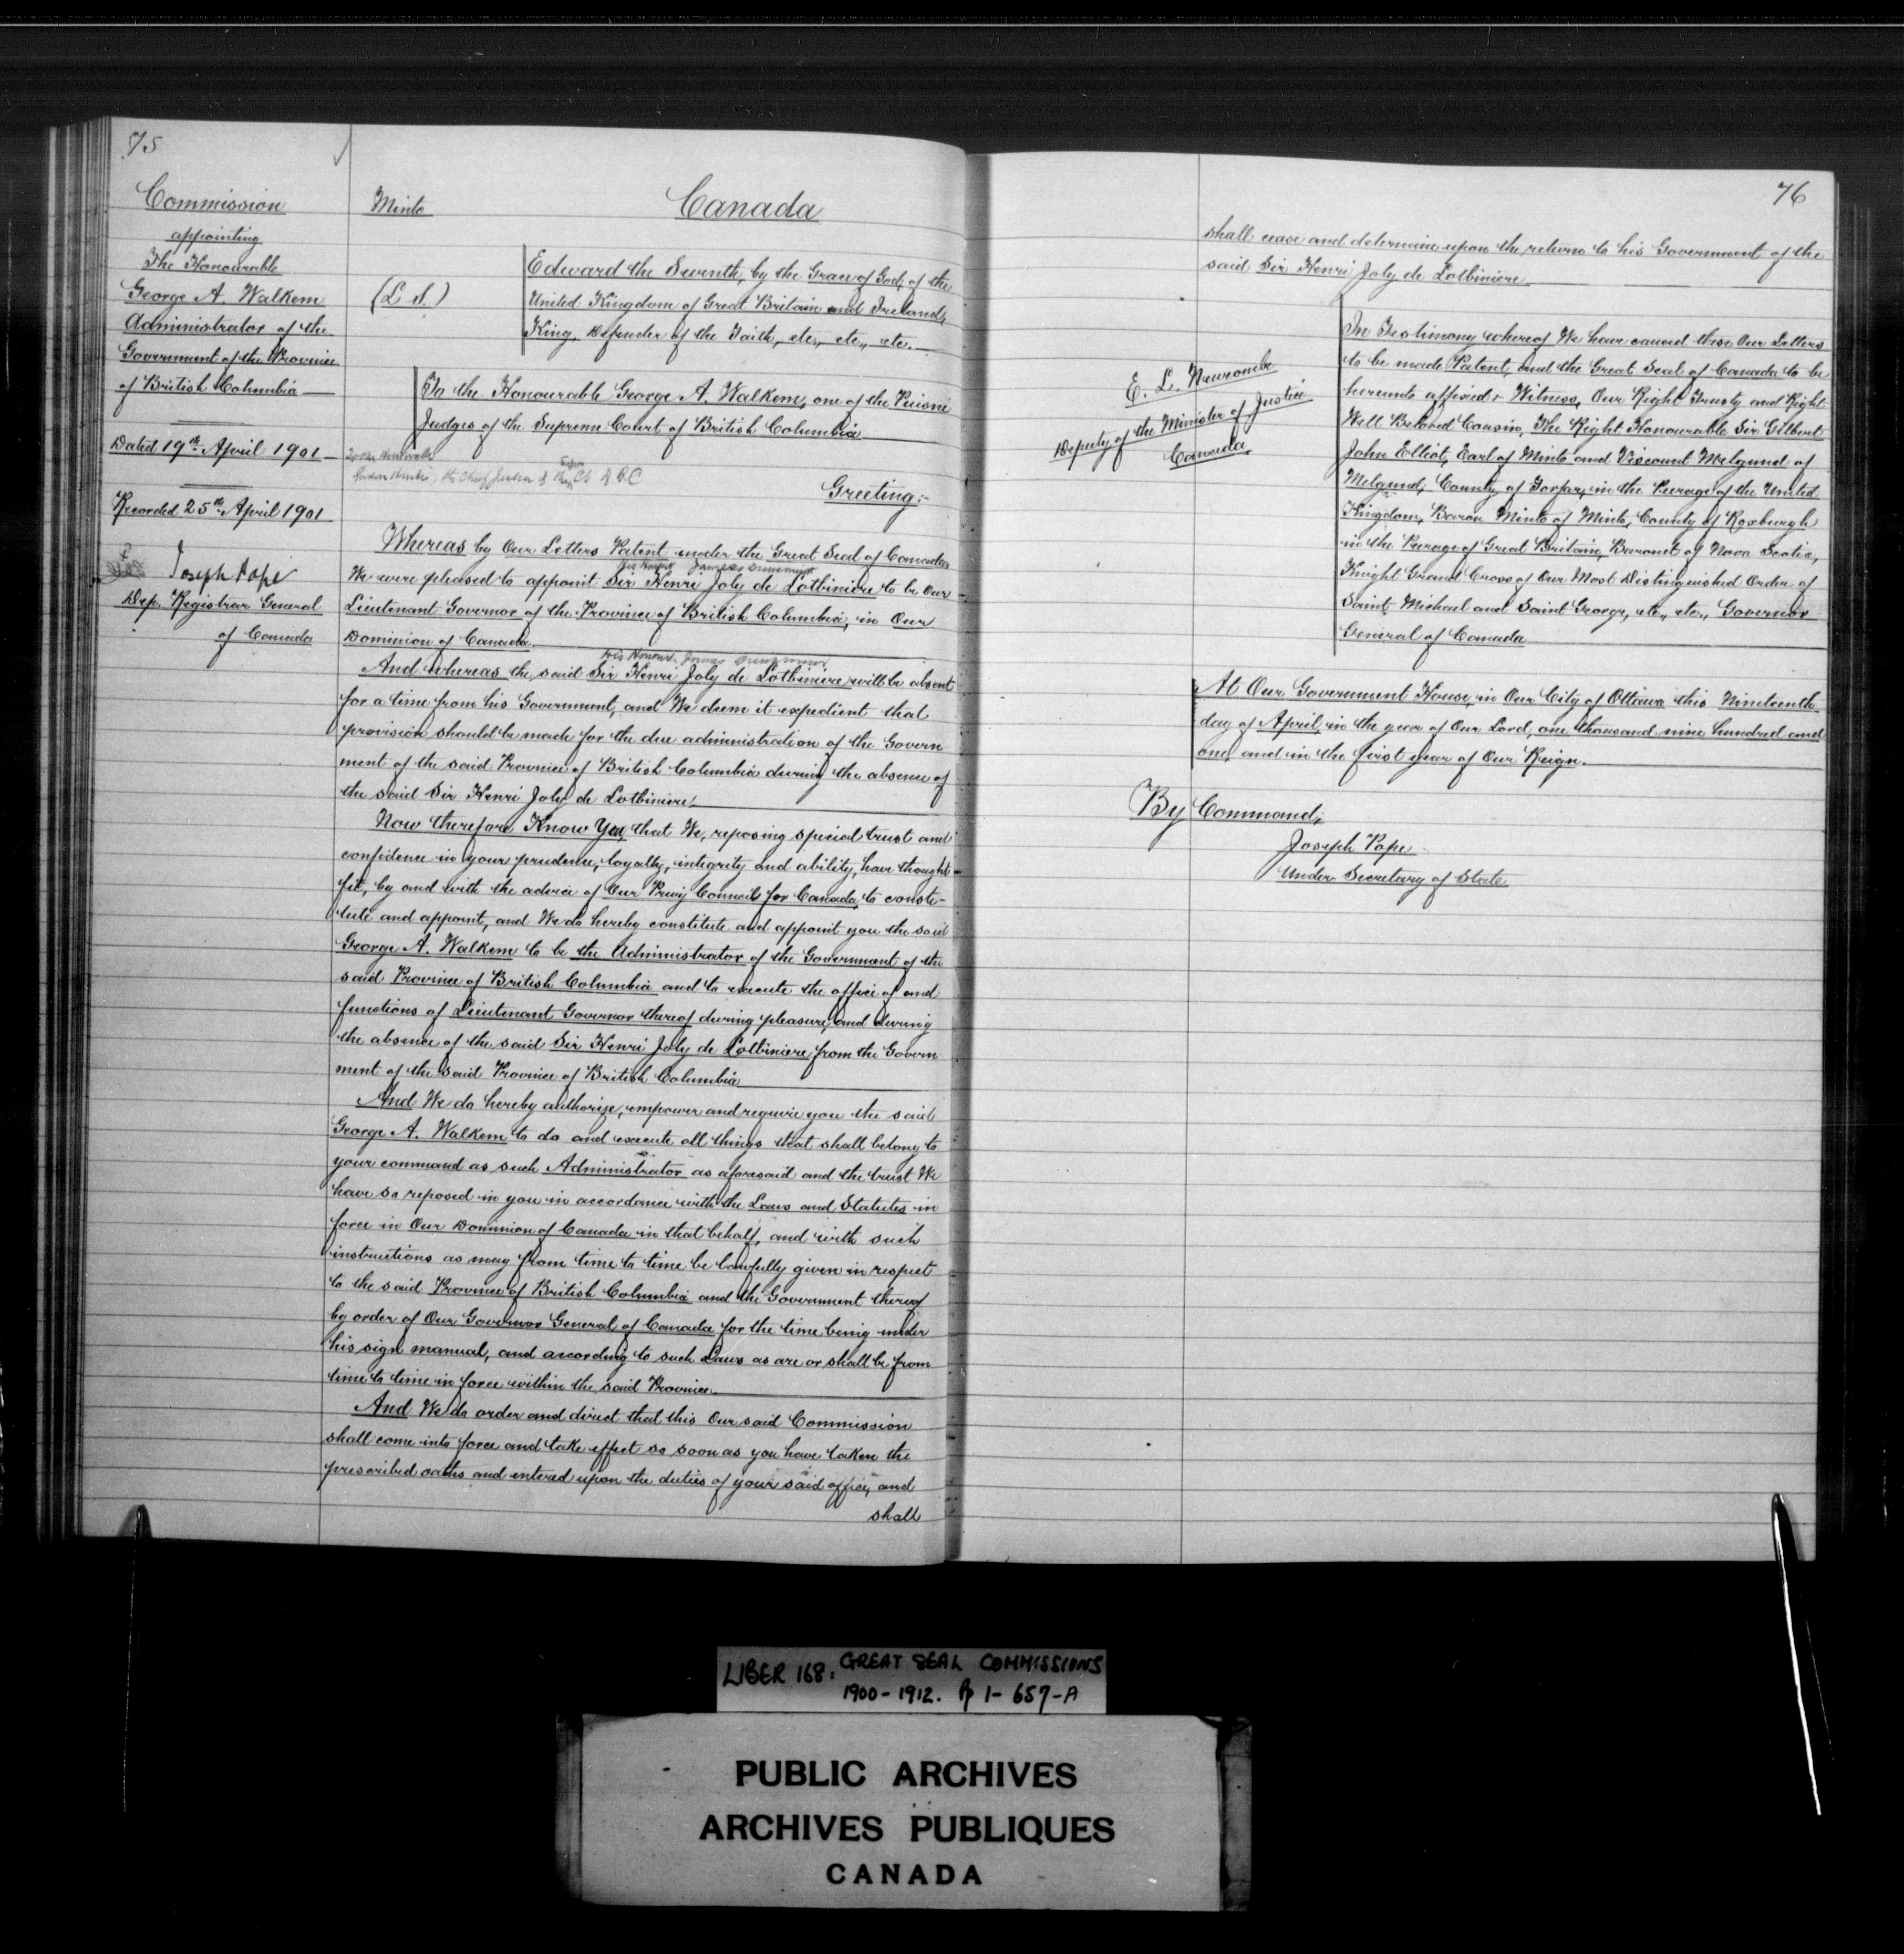 75
Commission
appointing
The Honourable
George A. Walkem
Administrator of the
Government of the Province
of British Columbia
Dated 19th April 1901
Recorded 25th April 1901
Joseph Pope
Dep. Registrar General
of Canada
Minto
Canada
(L. S.)
Edward the Seventh, by the Grace of God, of the
United Kingdom of Great Britain and Ireland,
King, Defender of the Faith, etc., etc., etc.
To the Honourable George A. Walkem, one of the Puisne
Judges of the Supreme Court of British Columbia
To the Honourable
Gordon Hunter, the Chief Justice of the Supr Ct of B C
Greeting:-
Whereas by Our Letters Patent under the Great Seal of Canada
His Honour James Dunsmuir
We were pleased to appoint Sir Henri Joly de Lotbiniere to be Our
Lieutenant Governor of the Province of British Columbia, in Our
Dominion of Canada.
His Honour James Dunsmuir
And whereas the said Sir Henri Joly de Lotbiniere will be absent
for a time from his Government, and We deem it expedient that
provision should be made for the due administration of the Govern
ment of the said Province of British Columbia during the absence of
the said Sir Henri Joly de Lotbiniere.
Now therefore Know You, that We, reposing special trust and
confidence in your prudence, loyalty, integrity and ability, have thought
fit, by and with the advice of Our Privy Council for Canada, to consti-
tute and appoint, and We do hereby constitute and appoint you the said
George A. Walkem to be the Administrator of the Government of the
said Province of British Columbia and to execute the office of and
functions of Lieutenant Governor thereof during pleasure, and during
the absence of the said Sir Henri Joly de Lotbiniere from the Govern
ment of the said Province of British Columbia
And We do hereby authorize, empower and require you the said
George A. Walkem to do and execute all things that shall belong to
your command as such Administrator as aforesaid and the trust We
have so reposed in you in accordance with the Laws and Statutes in
force in Our Dominion of Canada in that behalf, and with such
instructions as may from time to time be lawfully given in respect
to the said Province of British Columbia and the Government thereof
by order of Our Governor General of Canada for the time being under
his sign manual, and according to such Laws as are or shall be from
time to time in force within the said Province.
And We do order and direct that this Our said Commission
shall come into force and take effect so soon as you have taken the
prescribed oaths and entered upon the duties of your said office, and
shall
76
shall cease and determine upon the return to his Government of the
said Sir Henri Joly de Lotbiniere
E. L. Newcombe
Deputy of the Minister of Justice
Canada
In Testimony whereof We have caused these Our Letters
to be made Patent, and the Great Seal of Canada to be
hereunto affixed: Witness, Our Right Trusty and Right
Well Beloved Cousin, The Right Honourable Sir Gilbert
John Elliot, Earl of Minto and Viscount Melgund of
Melgund, County of Forfar, in the Peerage of the United
Kingdom, Baron Minto of Minto, County of Roxburgh
in the Peerage of Great Britain, Baronet of Nova Scotia,
Knight Grand Cross of Our Most Distinguished Order of
Saint Michael and Saint George, etc., etc., Governor
General of Canada
At Our Government House, in Our City of Ottawa this Nineteenth
day of April, in the year of Our Lord, one thousand nine hundred and
one, and in the first year of Our Reign.
By Command,
Joseph Pope
Under-Secretary of State
LIBER 168: GREAT SEAL COMMISSIONS
1900-1912. Pp 1-657-A
PUBLIC ARCHIVES
ARCHIVES PUBLIQUES
CANADA